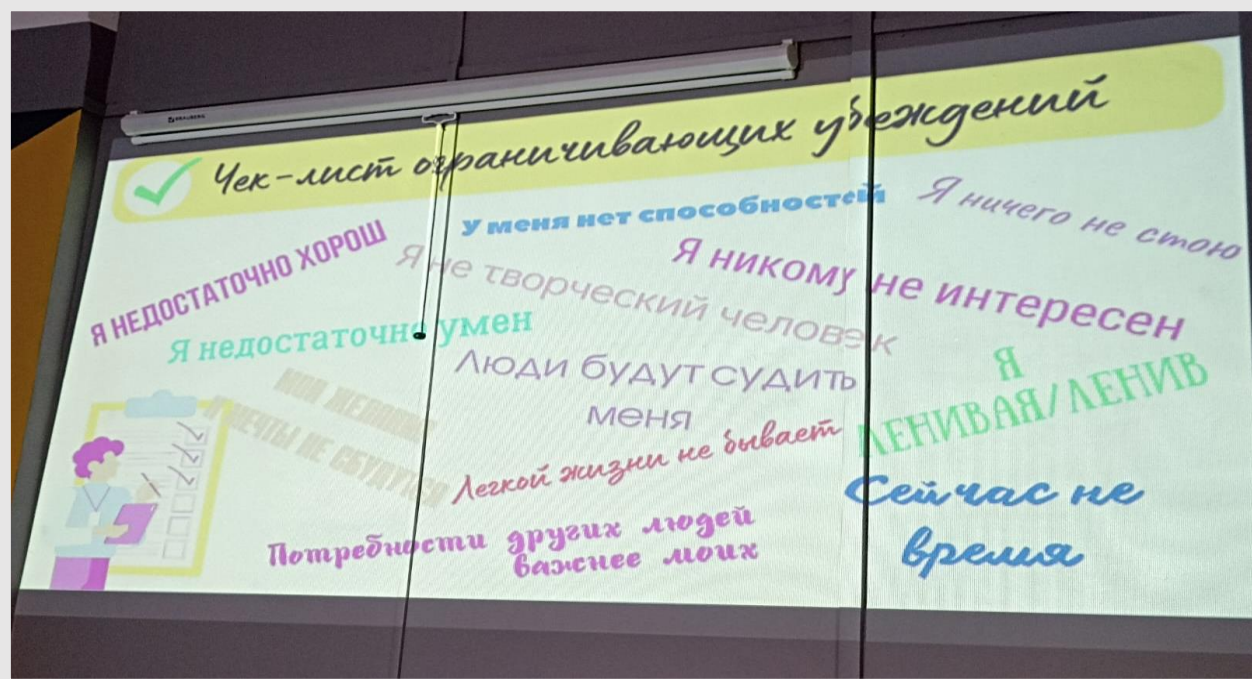 BRAUBERG
Чек-лист ограничивающих убеждений
У меня нет способностей
Я ничего не стою
Я НЕДОСТАТОЧНО ХОРОШ
Я не творческий человек
Я никому не интересен
Я недостаточно умен
Люди будут судить
меня
Я
ЛЕНИВАЯ/ЛЕНИВ
МОИ ЖЕЛАНИЯ
И МЕЧТЫ НЕ СБУДУТСЯ
Легкой жизни не бывает
Сейчас не
время
Потребности других людей
важнее моих